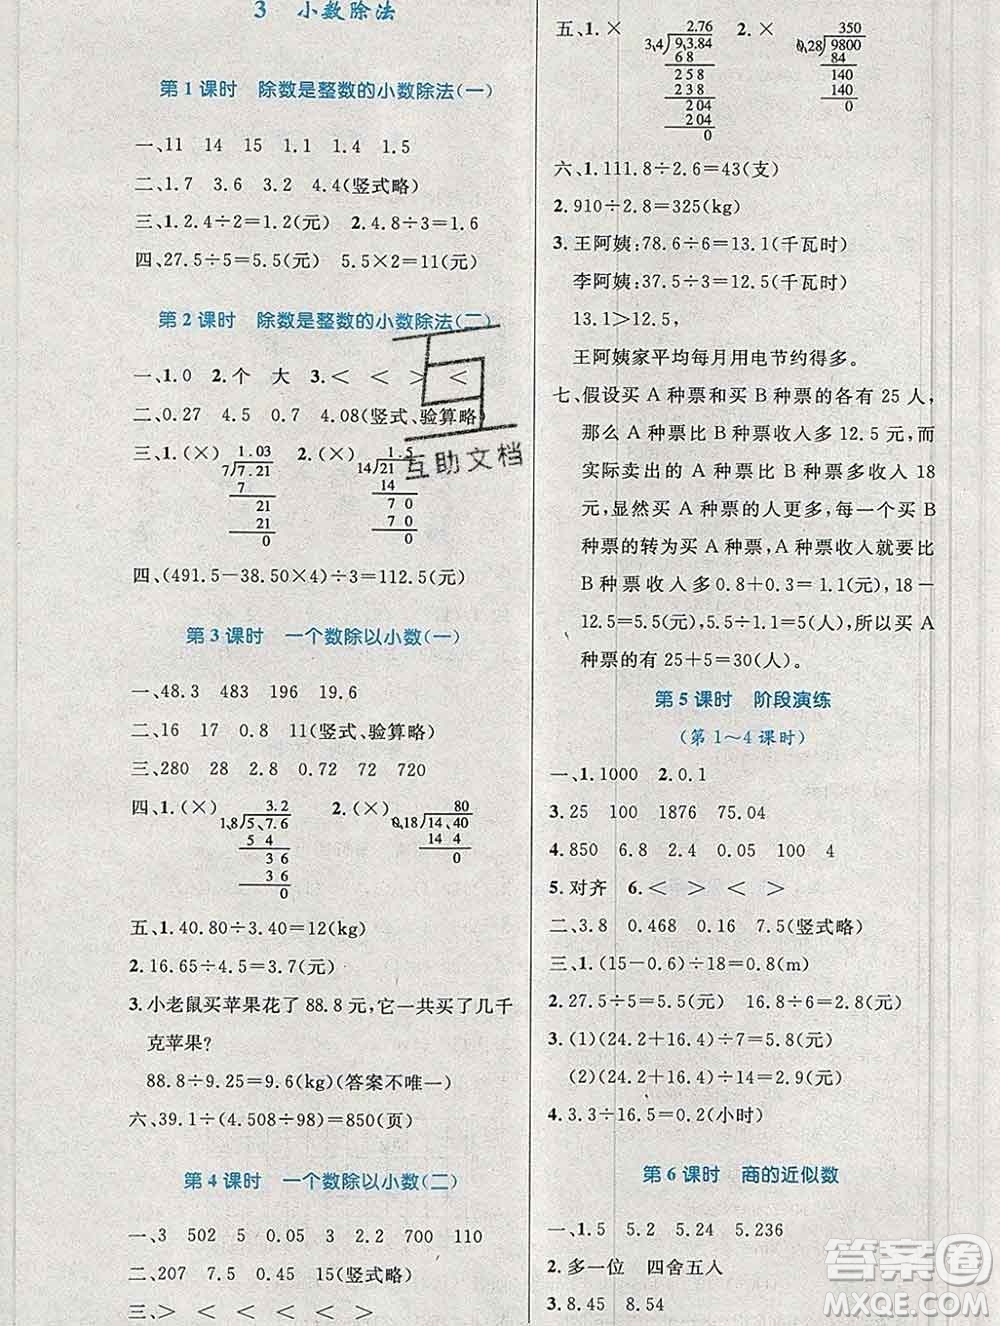 3 小数除法
第1课时 除数是整数的小数除法(一)
一、11 14 15 1.1 1.4 1.5
二、1.7 3.6 3.2 4.4(竖式略)
三、1. 2.4÷2=1.2(元) 2. 4.8÷3=1.6
四、27.5÷5=5.5(元) 5.5×2=11(元)
第2课时 除数是整数的小数除法(二)
一、1. 0 2. 个 大 3. < < > <
二、0.27 4.5 0.7 4.08(竖式、验算略)
三、1. (×) 2. (×)
1.03
7 7.21
7
21
21
0
1.5
14 21
14
7 0
7 0
0
四、(491.5-38.50×4)÷3=112.5(元)
第3课时 一个数除以小数(一)
一、48.3 483 196 19.6
二、16 17 0.8 11(竖式、验算略)
三、280 28 2.8 0.72 72 720
四、1. (×) 2. (×)
3.2
1.8 5.7.6
5 4
3 6
3 6
0
80
0.18 14.40
14 4
0
五、1. 40.80÷3.40=12(kg)
2. 16.65÷4.5=3.7(元)
3. 小老鼠买苹果花了88.8元,它一共买了几千
克苹果?
88.8÷9.25=9.6(kg)(答案不唯一)
六、39.1÷(4.508÷98)=850(页)
第4课时 一个数除以小数(二)
一、3 502 5 0.05 3 2 700 110
二、207 7.5 0.45 15(竖式略)
三、> < < < < >
五、1. × 2. ×
2.76
3.4 9.3.84
6 8
2 5 8
2 3 8
2 04
2 04
0
350
0.28 9800
84
140
140
0
六、1. 111.8÷2.6=43(支)
2. 910÷2.8=325(kg)
3. 王阿姨:78.6÷6=13.1(千瓦时)
李阿姨:37.5÷3=12.5(千瓦时)
13.1>12.5,
王阿姨家平均每月用电节约得多。
七、假设买A种票和买B种票的各有25人,
那么A种票比B种票收入多12.5元,而
实际卖出的A种票比B种票多收入18
元,显然买A种票的人更多,每一个买B
种票的转为买A种票,A种票就要比B
种票收入多0.8+0.3=1.1(元),18-
12.5=5.5(元),5.5÷1.1=5(人),所以买A
种票的有25+5=30(人)。
第5课时 阶段演练
(第1~4课时)
一、1. 1000 2. 0.1
3. 25 100 1876 75.04
4. 850 6.8 2.4 0.05 100 4
5. 对齐 6. < > < >
二、3.8 0.468 0.16 7.5(竖式略)
三、1. (15-0.6)÷18=0.8(m)
2. 27.5÷5=5.5(元) 16.8÷6=2.8(元)
3. (1)(24.2+16.4)÷7=5.8(元)
(2)(24.2+16.4)÷14=2.9(元)
4. 3.3÷16.5=0.2(小时)
第6课时 商的近似数
一、1. 5 5.2 5.24 5.236
2. 多一位 四舍五入
3. 8.45 8.54
互助文档
答案圈
MXQE.COM